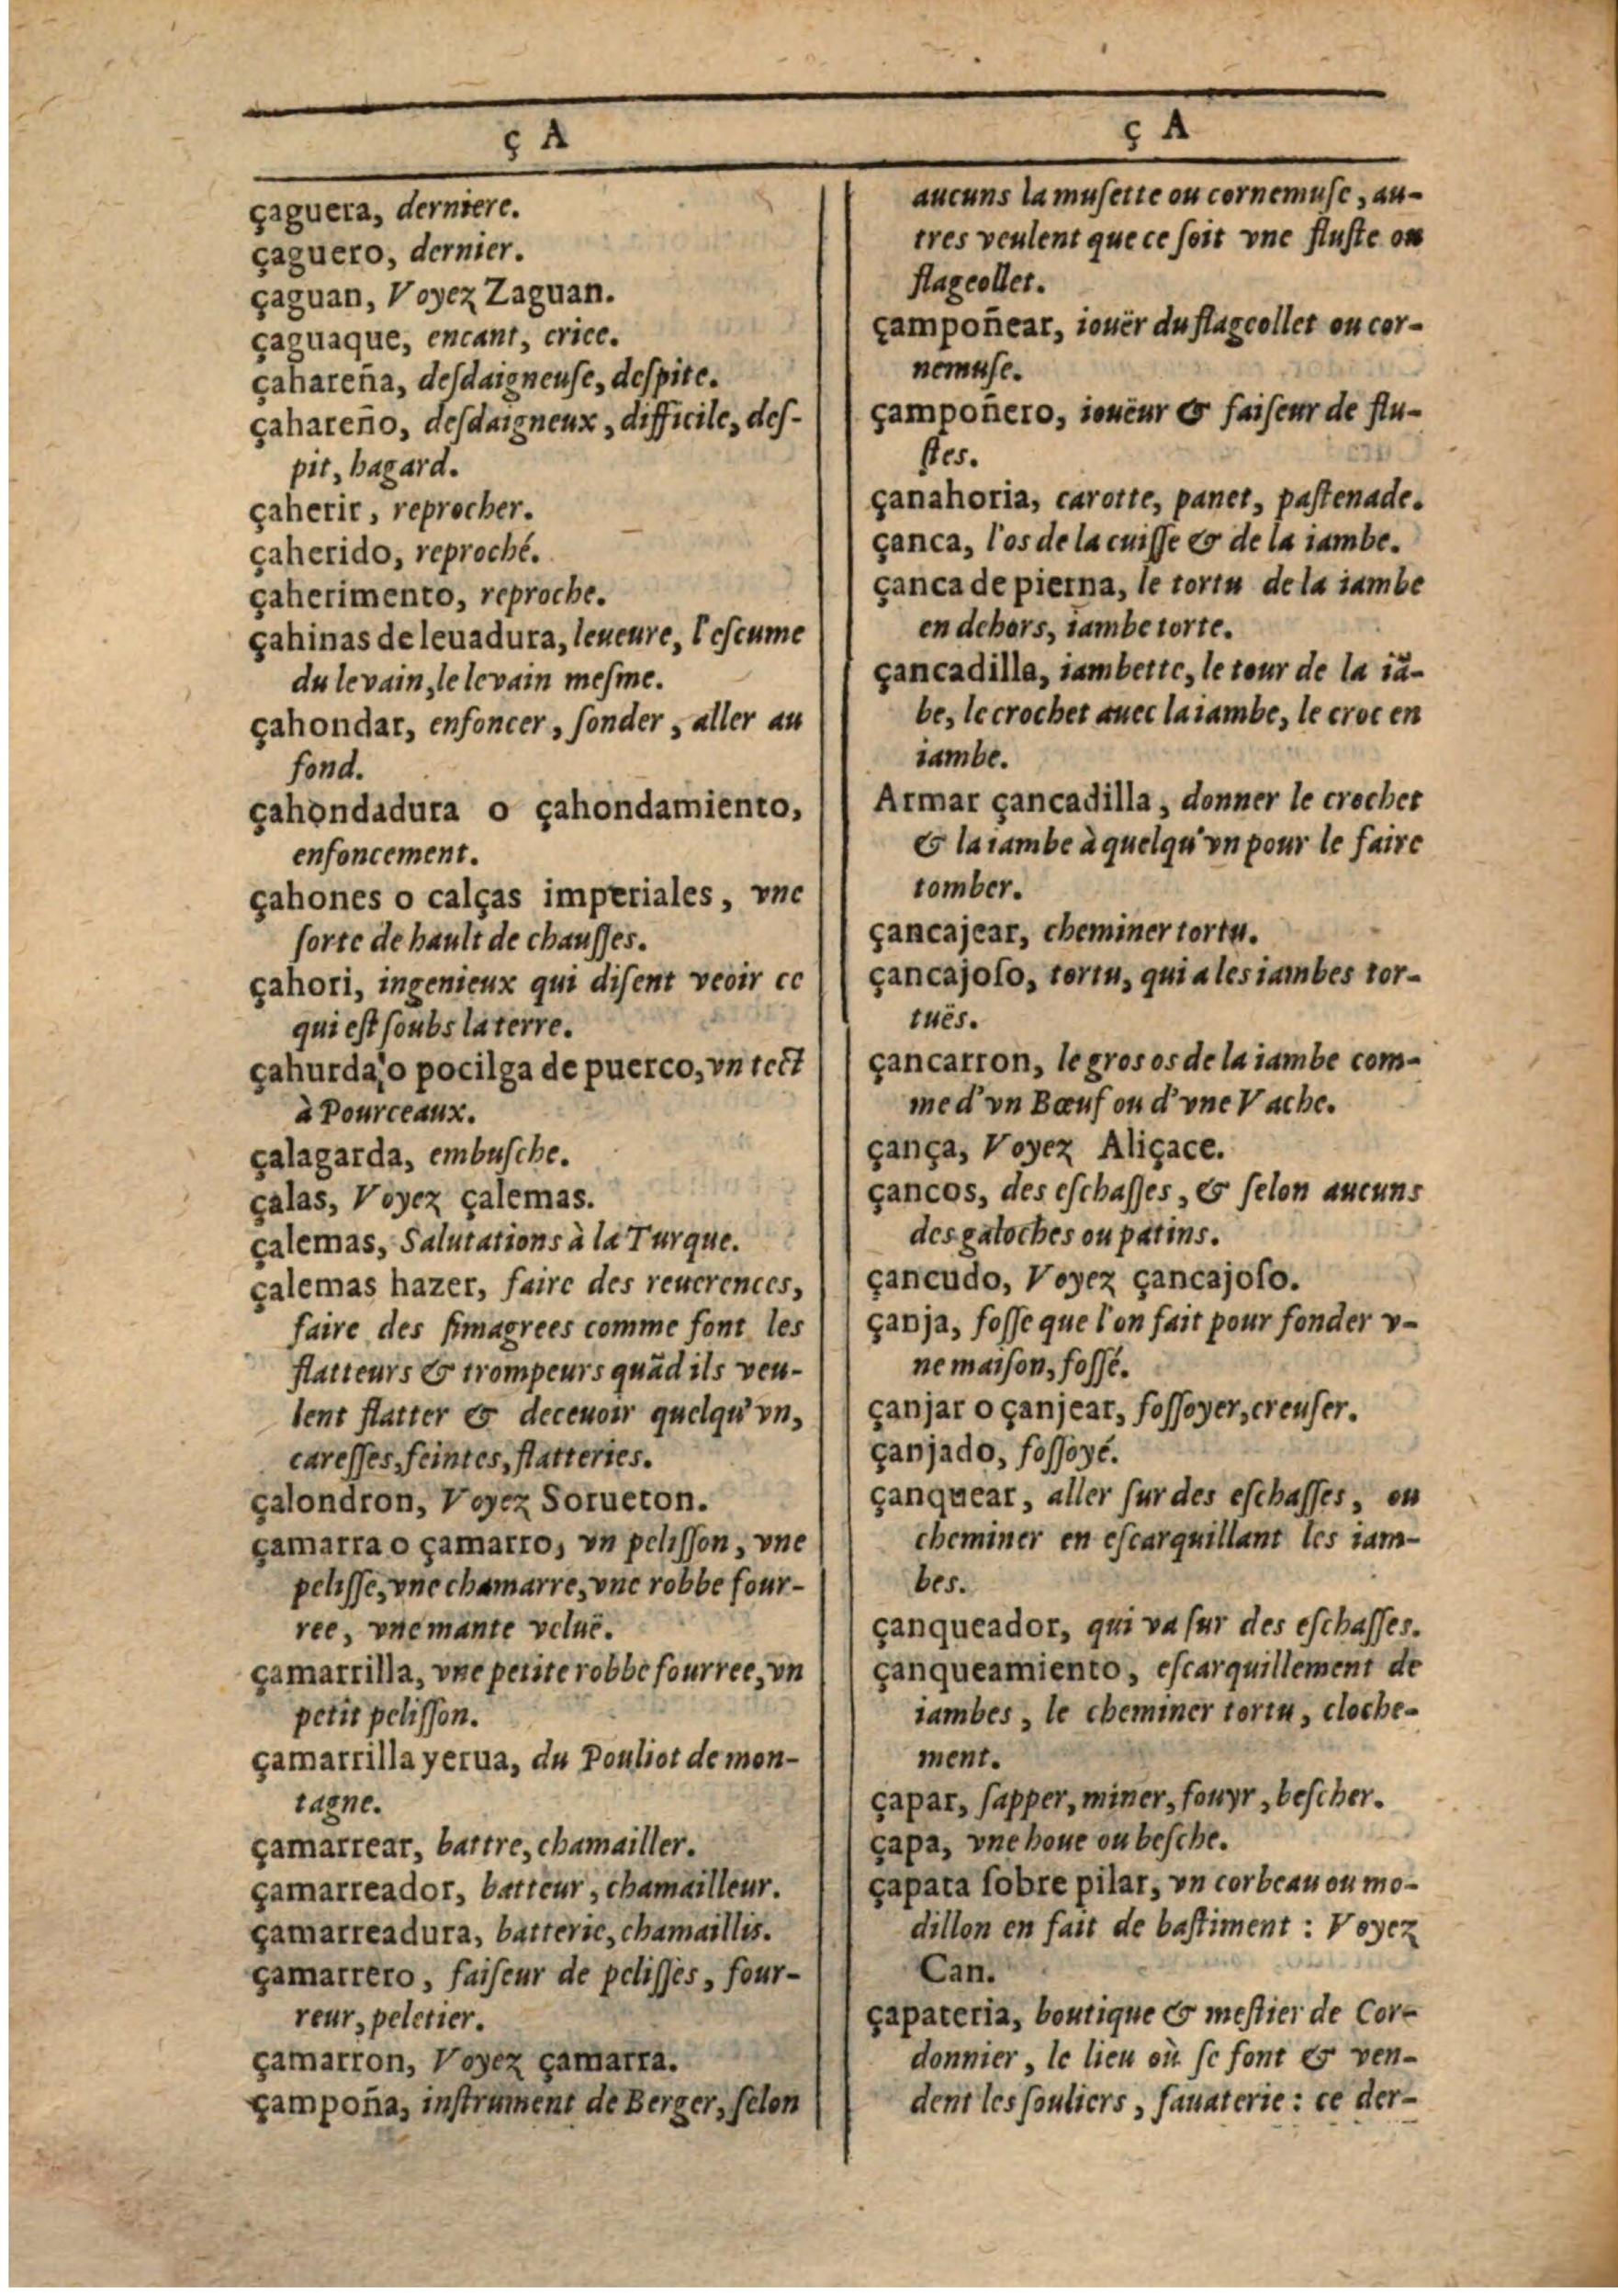 ç A
çaguera, derniere.
çaguero, dernier.
çaguan, Voyez Zaguan.
çaguaque, encant, criee.
çahareña, desdaigneuſe, deſpite.
çahareño, deſdaigneux, difficile, deſ-
pit, hagard.
çaherir, reprocher.
çaherido, reproché.
çaherimento, reproche.
çahinas de leuadura, leueure, l'eſcume
du levain, le levain meſme.
çahondar, enfoncer, ſonder, aller au
fond.
çahondadura o çahondamiento,
enfoncement.
çahones o calças imperiales, vne
ſorte de hault de chauſſes.
çahori, ingenieux qui diſent veoir ce
qui eſt ſoubs la terre.
çahurda, o pocilga de puerco, vn tect
à Pourceaux.
çalagarda, embuſche.
çalas, Voyez çalemas.
çalemas, Salutations à la Turque.
çalemas hazer, faire des reuerences,
faire des ſimagrees comme font les
flatteurs & trompeurs quãd ils veu-
lent flatter & deceuoir quelqu'vn,
careſſes, feintes, flatteries.
çalondron, Voyez Sorueton.
çamarra o çamarro, vn peliſſon, vne
peliſſe, vne chamarre, vne robbe four-
ree, vne mante veluë.
çamarrilla, vne petite robbe fourree, vn
petit peliſſon.
çamarrilla yerua, du Pouliot de mon-
tagne.
çamarrear, battre, chamailler.
çamarreador, batteur, chamailleur.
çamarreadura, batterie, chamaillis.
çamarrero, faiſeur de peliſſes, four-
reur, peletier.
çamarron, Voyez çamarra.
çampoña, inſtrument de Berger, ſelon
ç A
aucuns la muſette ou cornemuſe, au-
tres veulent que ce ſoit vne fluſte ou
flageollet.
çampoñear, iouër du flageollet ou cor-
nemuſe.
çampoñero, iouëur & faiſeur de flu-
ſtes.
çanahoria, carotte, panet, paſtenade.
çanca, l'os de la cuiſſe & de la iambe.
çanca de pierna, le tortu de la iambe
en dehors, iambe torte.
çancadilla, iambette, le tour de la iã-
be, le crochet auec la iambe, le croc en
iambe.
Armar çancadilla, donner le crochet
& la iambe à quelqu'vn pour le faire
tomber.
çancajear, cheminer tortu.
çancajoſo, tortu, qui a les iambes tor-
tuës.
çancarron, le gros os de la iambe com-
me d'vn Bœuf ou d'vne Vache.
çança, Voyez Aliçace.
çancos, des eſchaſſes, & ſelon aucuns
des galoches ou patins.
çancudo, Voyez çancajoſo.
çanja, foſſe que l'on fait pour fonder v-
ne maiſon, foſſé.
çanjar o çanjear, foſſoyer, creuſer.
çanjado, foſſoyé.
çanquear, aller ſur des eſchaſſes, ou
cheminer en eſcarquillant les iam-
bes.
çanqueador, qui va ſur des eſchaſſes.
çanqueamiento, eſcarquillement de
iambes, le cheminer tortu, cloche-
ment.
çapar, ſapper, miner, fouyr, beſcher.
çapa, vne houe ou beſche.
çapata ſobre pilar, vn corbeau ou mo-
dillon en fait de baſtiment : Voyez
Can.
çapateria, boutique & meſtier de Cor-
donnier, le lieu où ſe font & ven-
dent les ſouliers, ſauaterie : ce der-